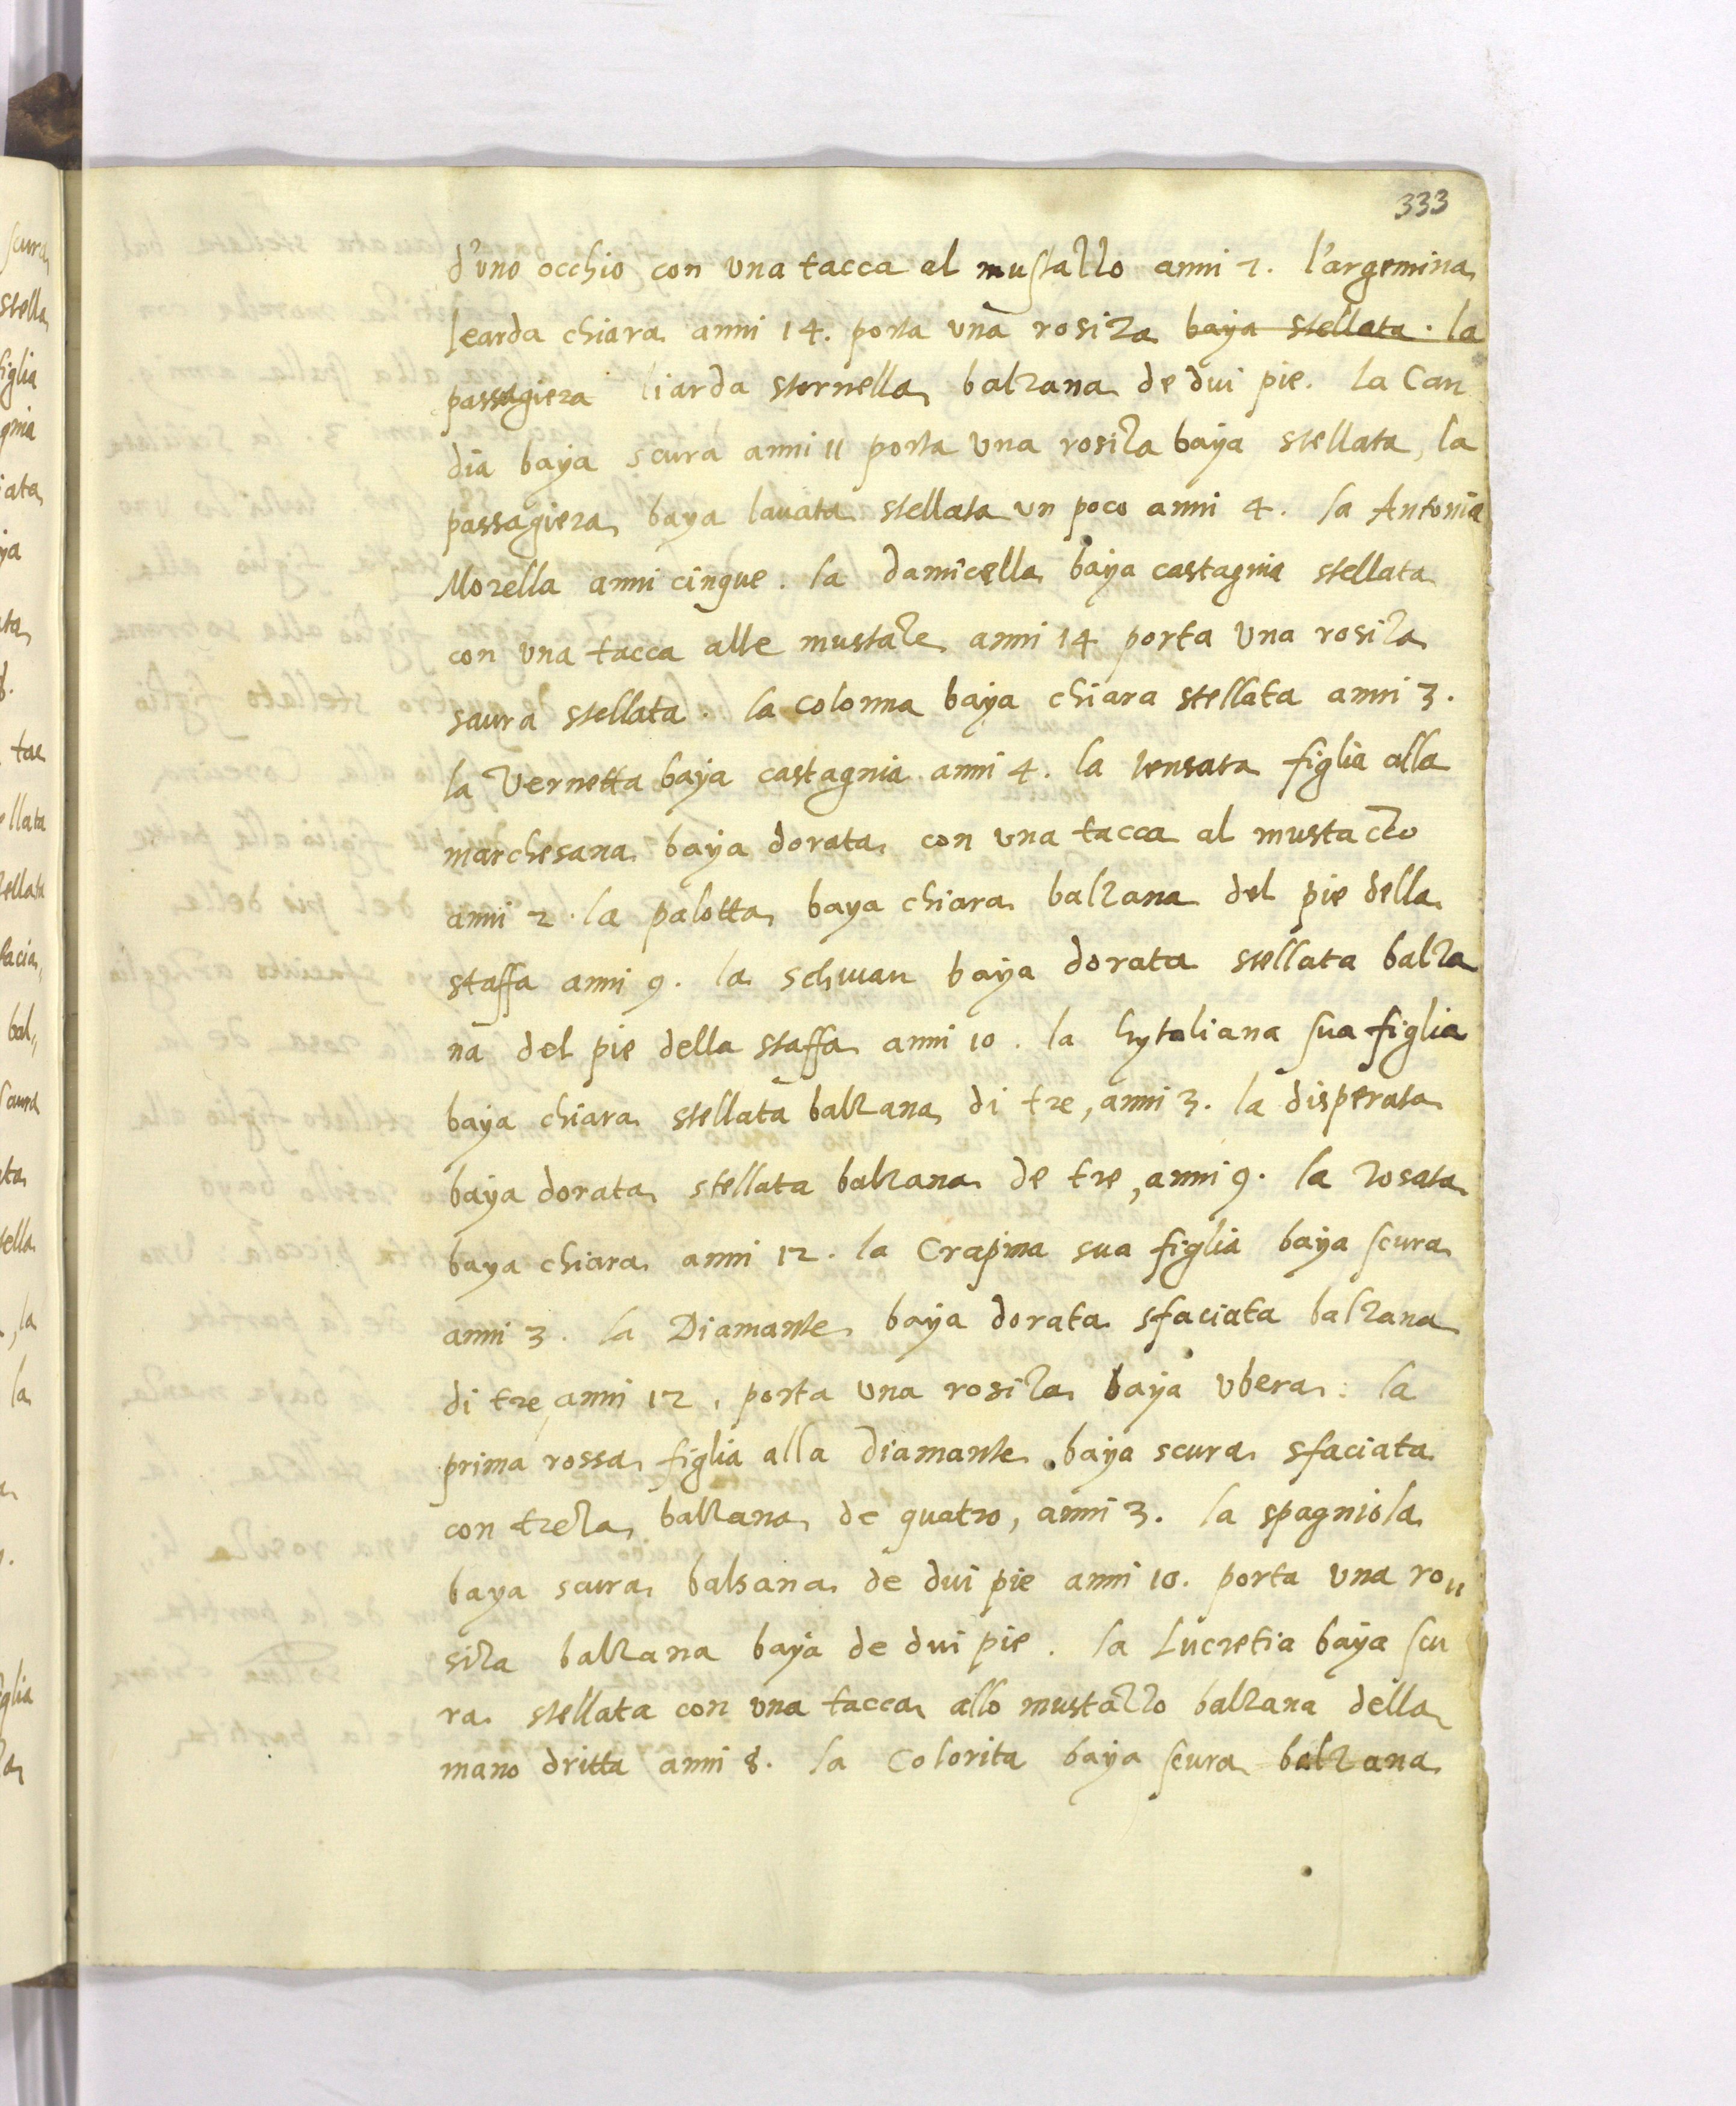 333
d'uno occhio con una tacca al mustazzo anni 2. l'argemina
learda chiara anni 14. porta una rosiza baya stellata. la
passagiera liarda stornella balzana de dui pie. la Can
dia baya scura anni 11 porta una rosiza baya stellata, la
passagiera baya lavata stellata un poco anni 4. la Antonia
Morella anni cinque. la damicella baya castagnia stellata
con una tacca alle mustaze anni 14 porta una rosiza
saura stellata. la colonna baya chiara stellata anni 3.
la Vernetta baya castagnia anni 4. la figlia alla
marchesana baya dorata con una tacca al mustaccio
anni 2. la palotta baya chiara balzana del pie della
staffa anni 9. la schwan baya dorata stellata balza
na del pie della staffa anni 10. la hytaliana sua figlia
baya chiara stellata balzana di tre, anni 3. la disperata
baya dorata stellata balzana de tre, anni 9. la rosata
baya chiara anni 12. la Crapina sua figlia baya scura
anni 3. la Diamante baya dorata sfaciata balzana
di tre, anni 12. porta una rosiza baya ubera. la
prima rossa figlia alla diamante baya scura sfaciata
con treza balzana de quatro, anni 3. la spagniola
baya scura balsana de dui pie anni 10. porta una ro,,
siza balzana baya de dui pie. la Lucretia baya scu
ra stellata con una tacca allo mustazzo balzana della
mano dritta anni 8. la Colorita baya scura balzana